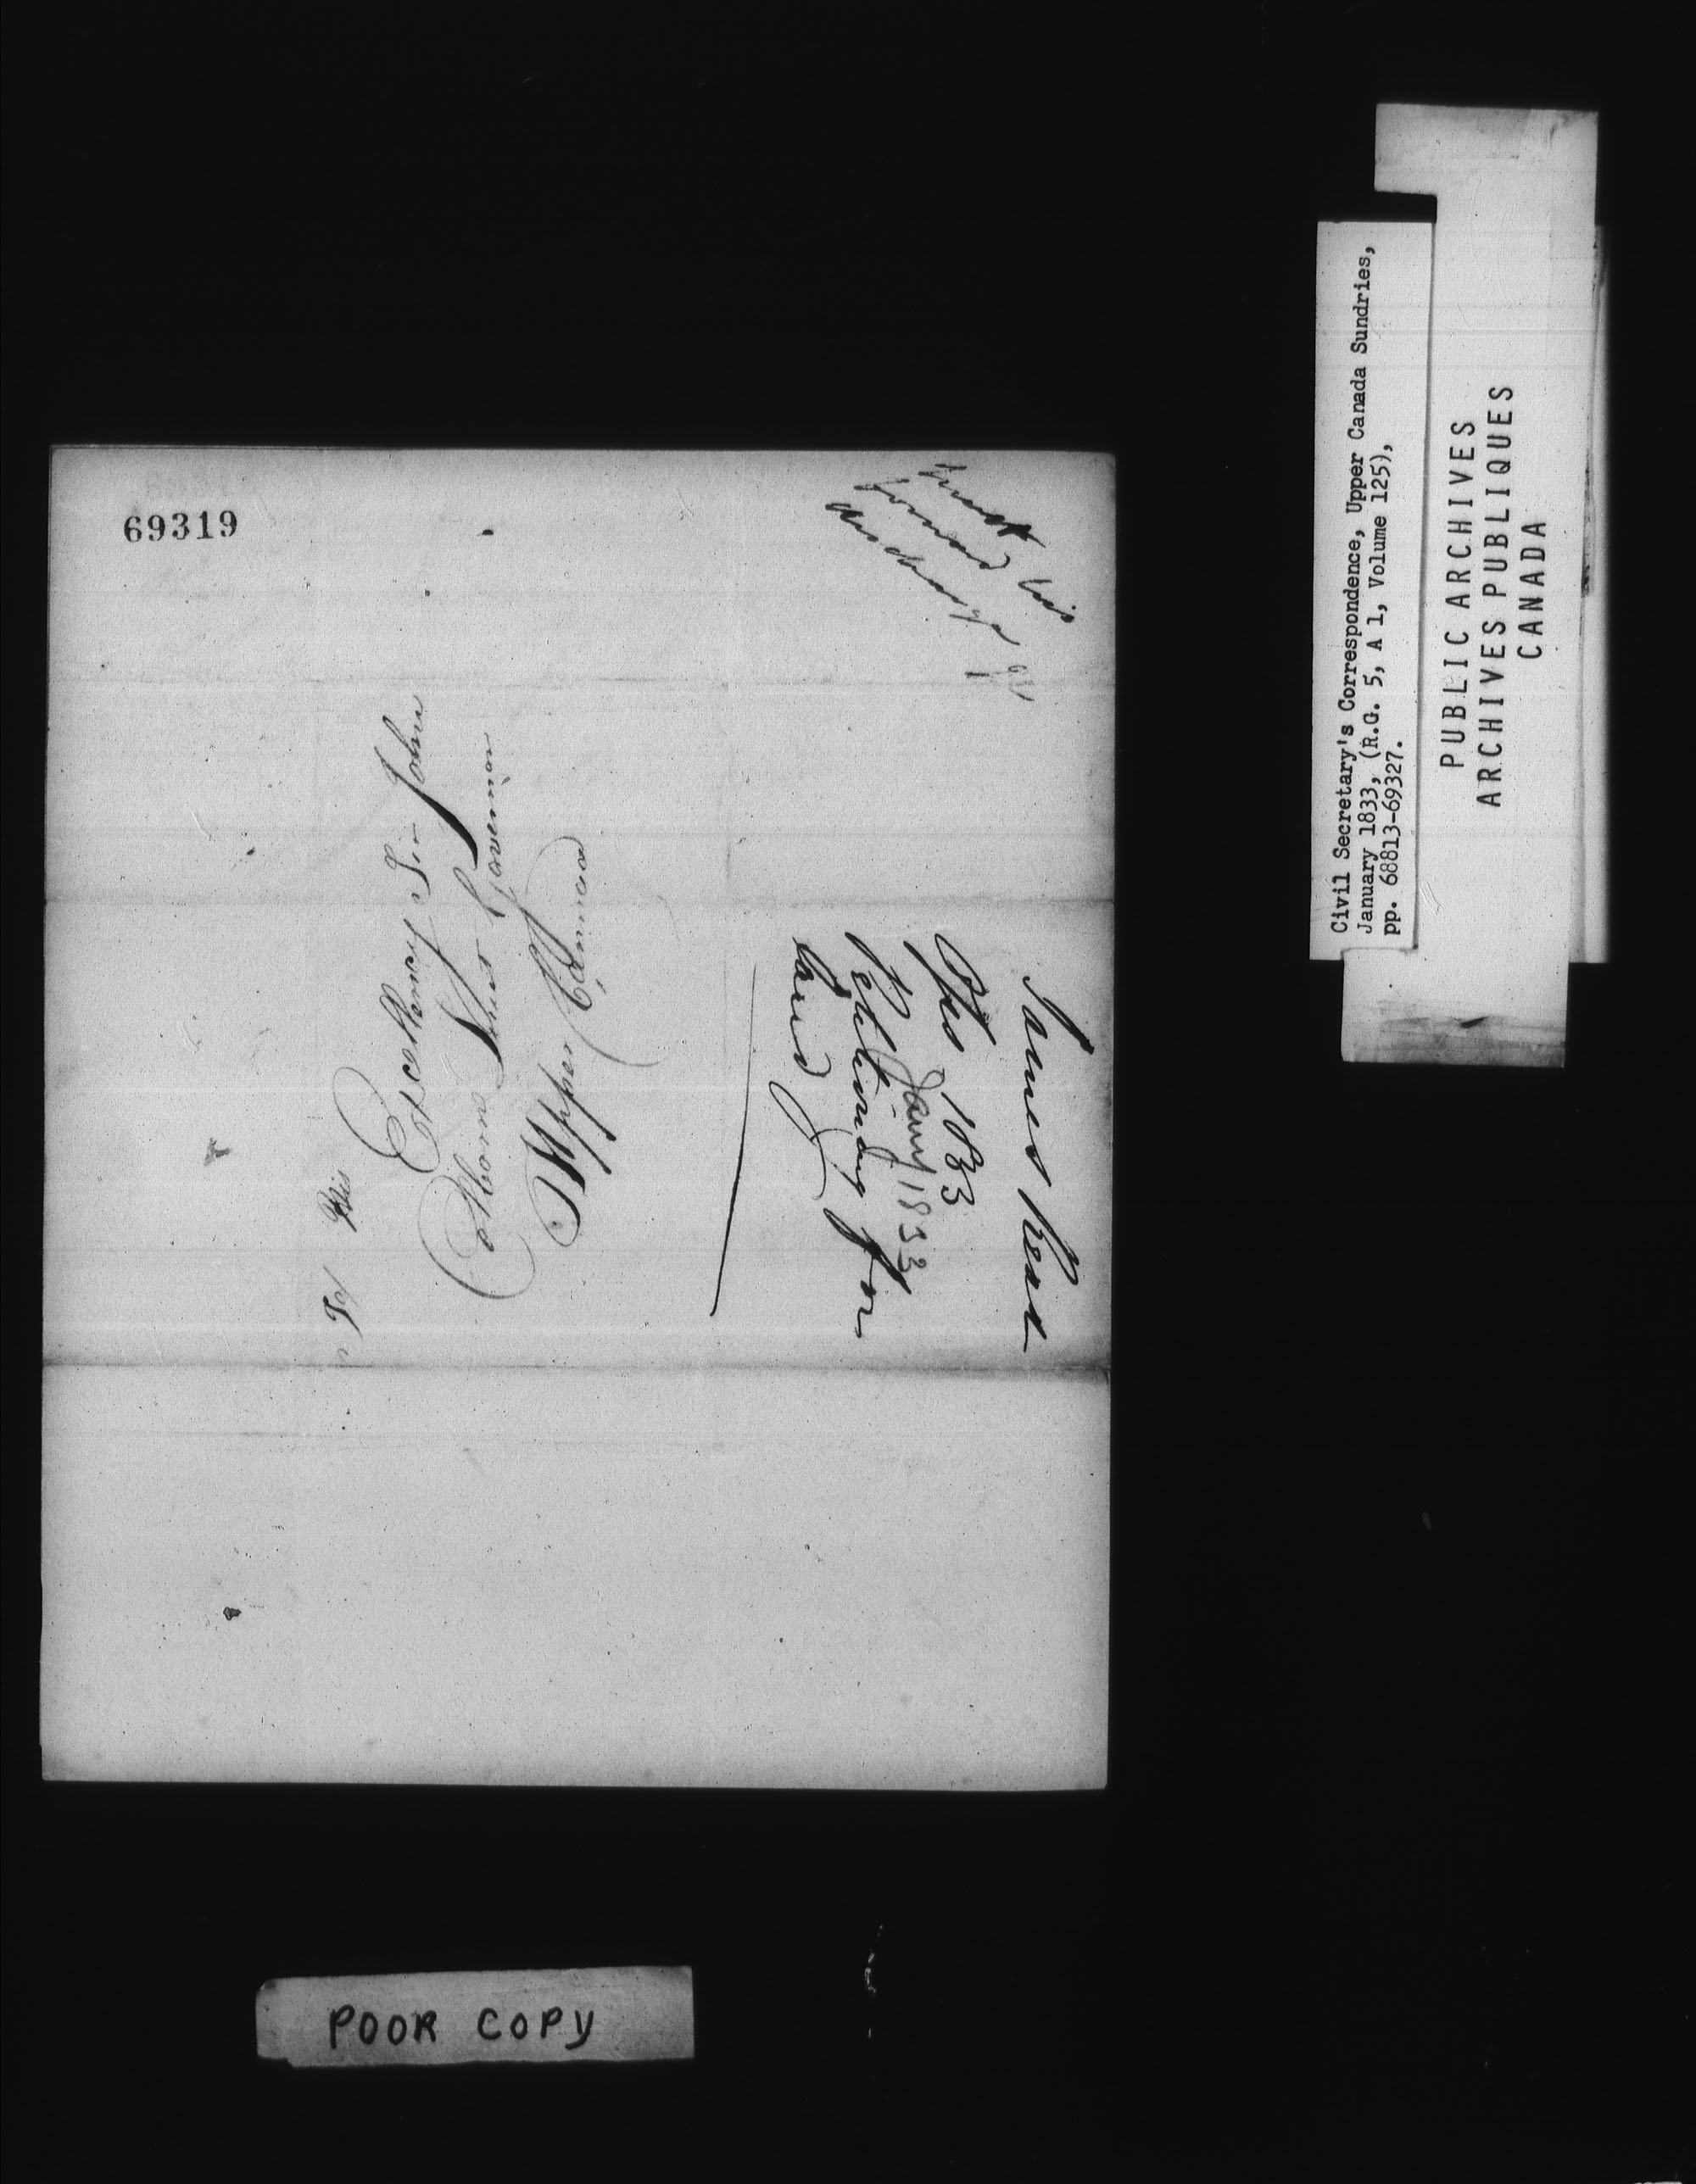 69319
must
forward his
discharge
To His
Excellency Sir John
Colborne Lieut Governor
Upper Cannada
James Read
1833
Jany 1833
Petitioning for
land
Civil Secretary's Correspondence, Upper Canada Sundries,
January 1833, (R.G. 5, A 1, Volume 125),
pp. 68813-69327.
PUBLIC ARCHIVES
ARCHIVES PUBLIQUES
CANADA
POOR COPY